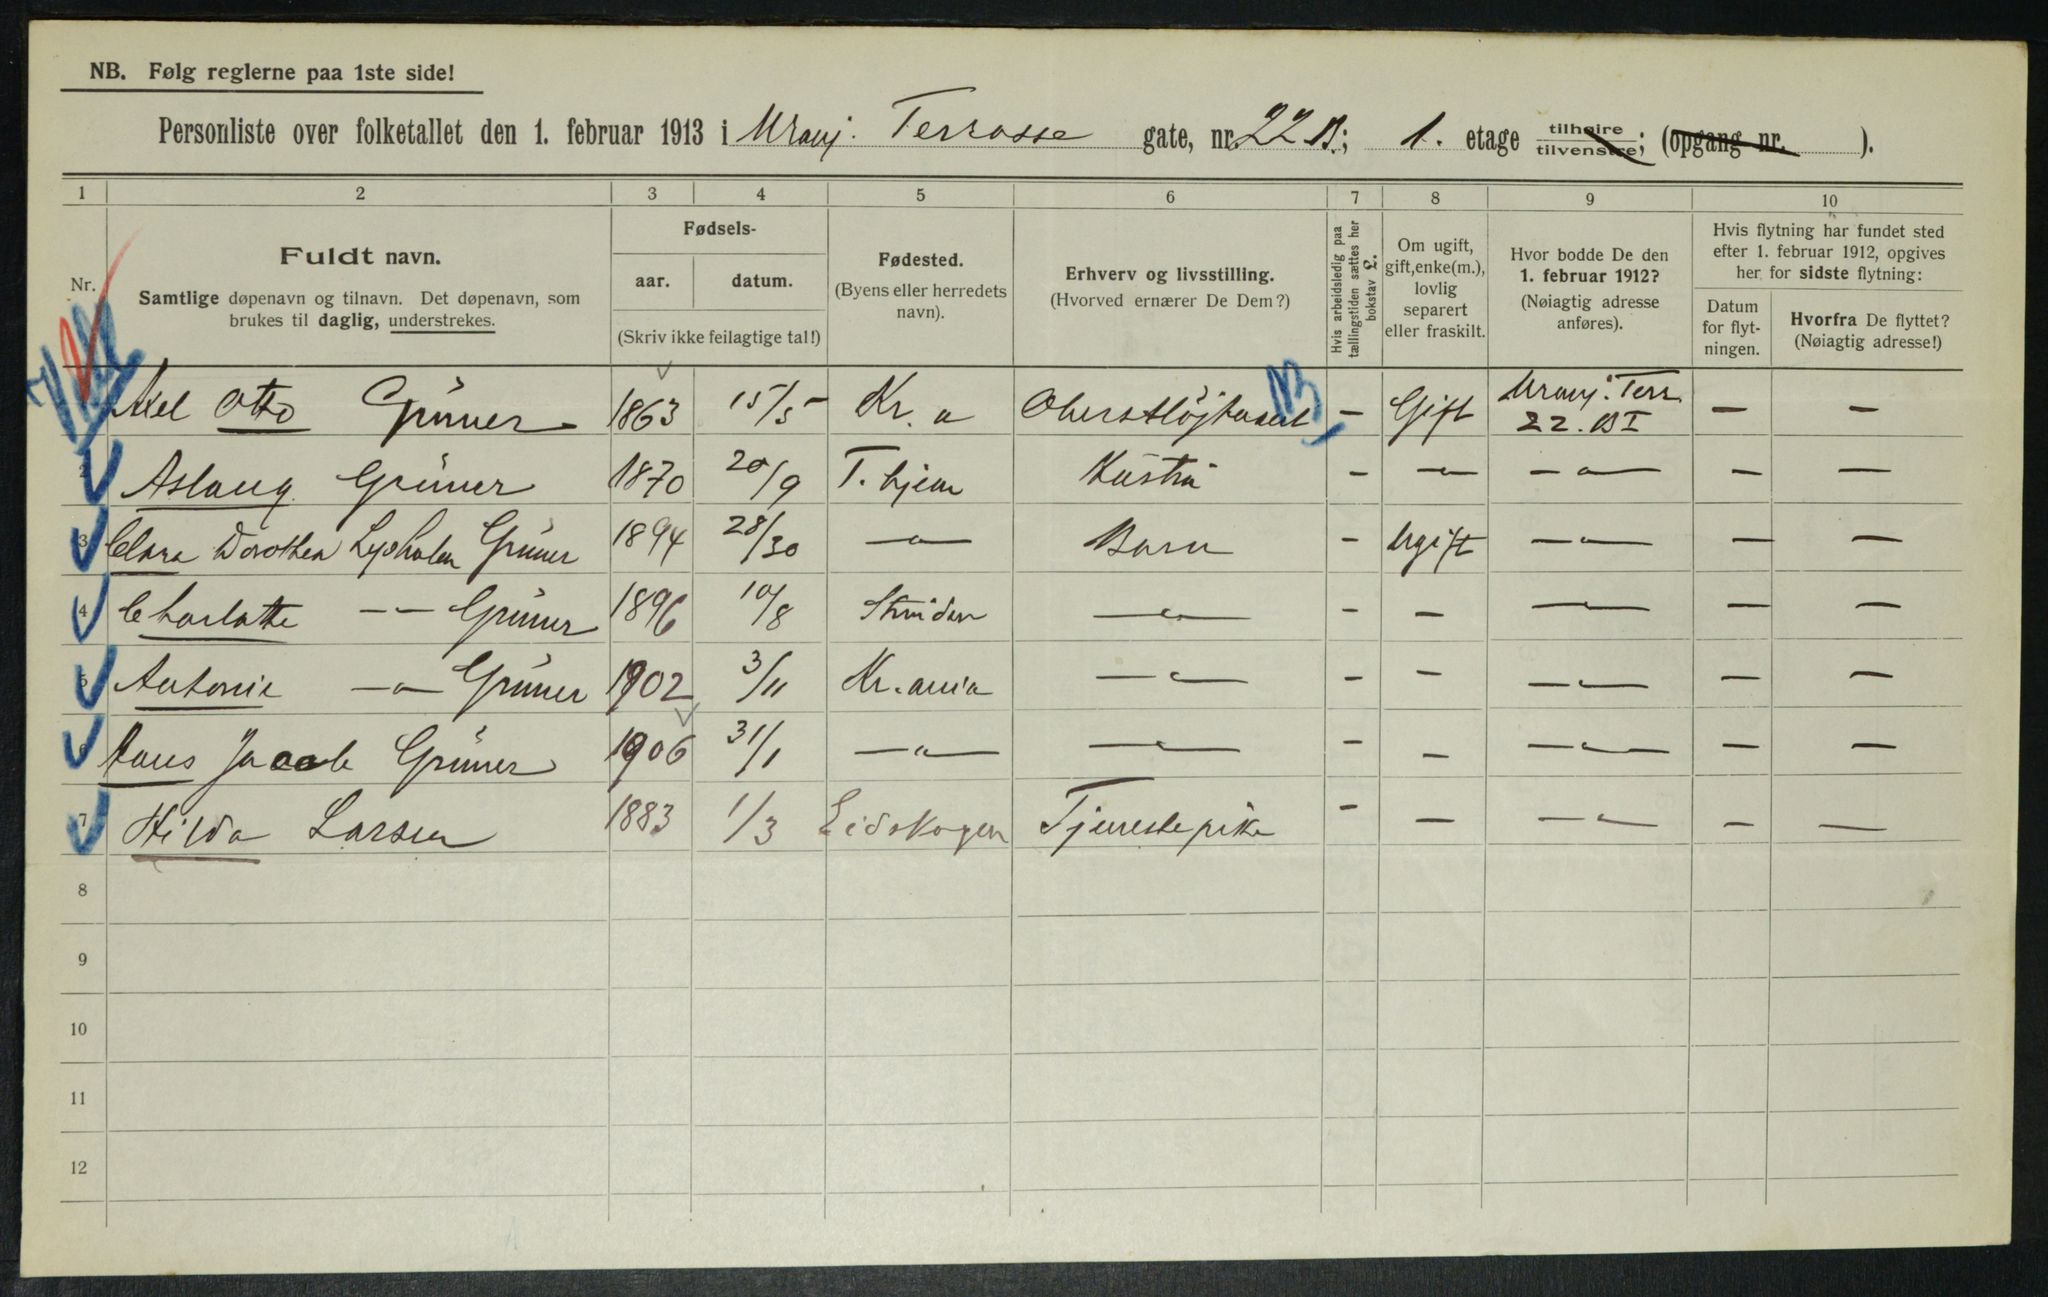 NB. Følg reglerne paa 1ste side!
Personliste over folketallet den 1. februar 1913 i Uranj. Terrasse gate, nr. 22 B.; 1. etage tilhøire tilvenstre; (opgang nr. ).
1 2 3 4 5 6 7 8 9 10
Nr.
Fuldt navn.
Samtlige døpenavn og tilnavn. Det døpenavn, som
brukes til daglig, understrekes.
Fødsels-
aar. datum.
(Skriv ikke feilagtige tal!)
Fødested.
(Byens eller herredets
navn).
Erhverv og livsstilling.
(Hvorved ernærer De Dem?)
Hvis arbeidsledig paa
tællingstiden sættes her
bokstav L.
Om ugift,
gift, enke(m.),
lovlig
separert
eller fraskilt.
Hvor bodde De den
1. februar 1912?
(Nøiagtig adresse
anføres).
Hvis flytning har fundet sted
efter 1. februar 1912, opgives
her for sidste flytning:
Datum
for flyt-
ningen.
Hvorfra De flyttet?
(Nøiagtig adresse!)
Axel Otto Grüner 1863 15/5 Kr. a – Gift Uranj. Terr. 22. B I – –
2 Aslaug Grüner 1870 20/9 T. hjem Hustru – – " – – " – – –
3 Clara Dorothea Lysholm Grüner 1894 28/30 – " – Barn – Ugift – " – – –
4 Charlotte – " – Grüner 1896 10/8 – " – – – – " – – –
5 Antonie – " – Grüner 1902 3/11 Kr. ania – " – – – – " – – –
6 Hans Jacob Grüner 1906 31/1 – " – – " – – – – " – – –
7 Hilda Larsen 1883 1/3 Eidskogen Tjenestepike – – – " – – –
8
9
10
11
12